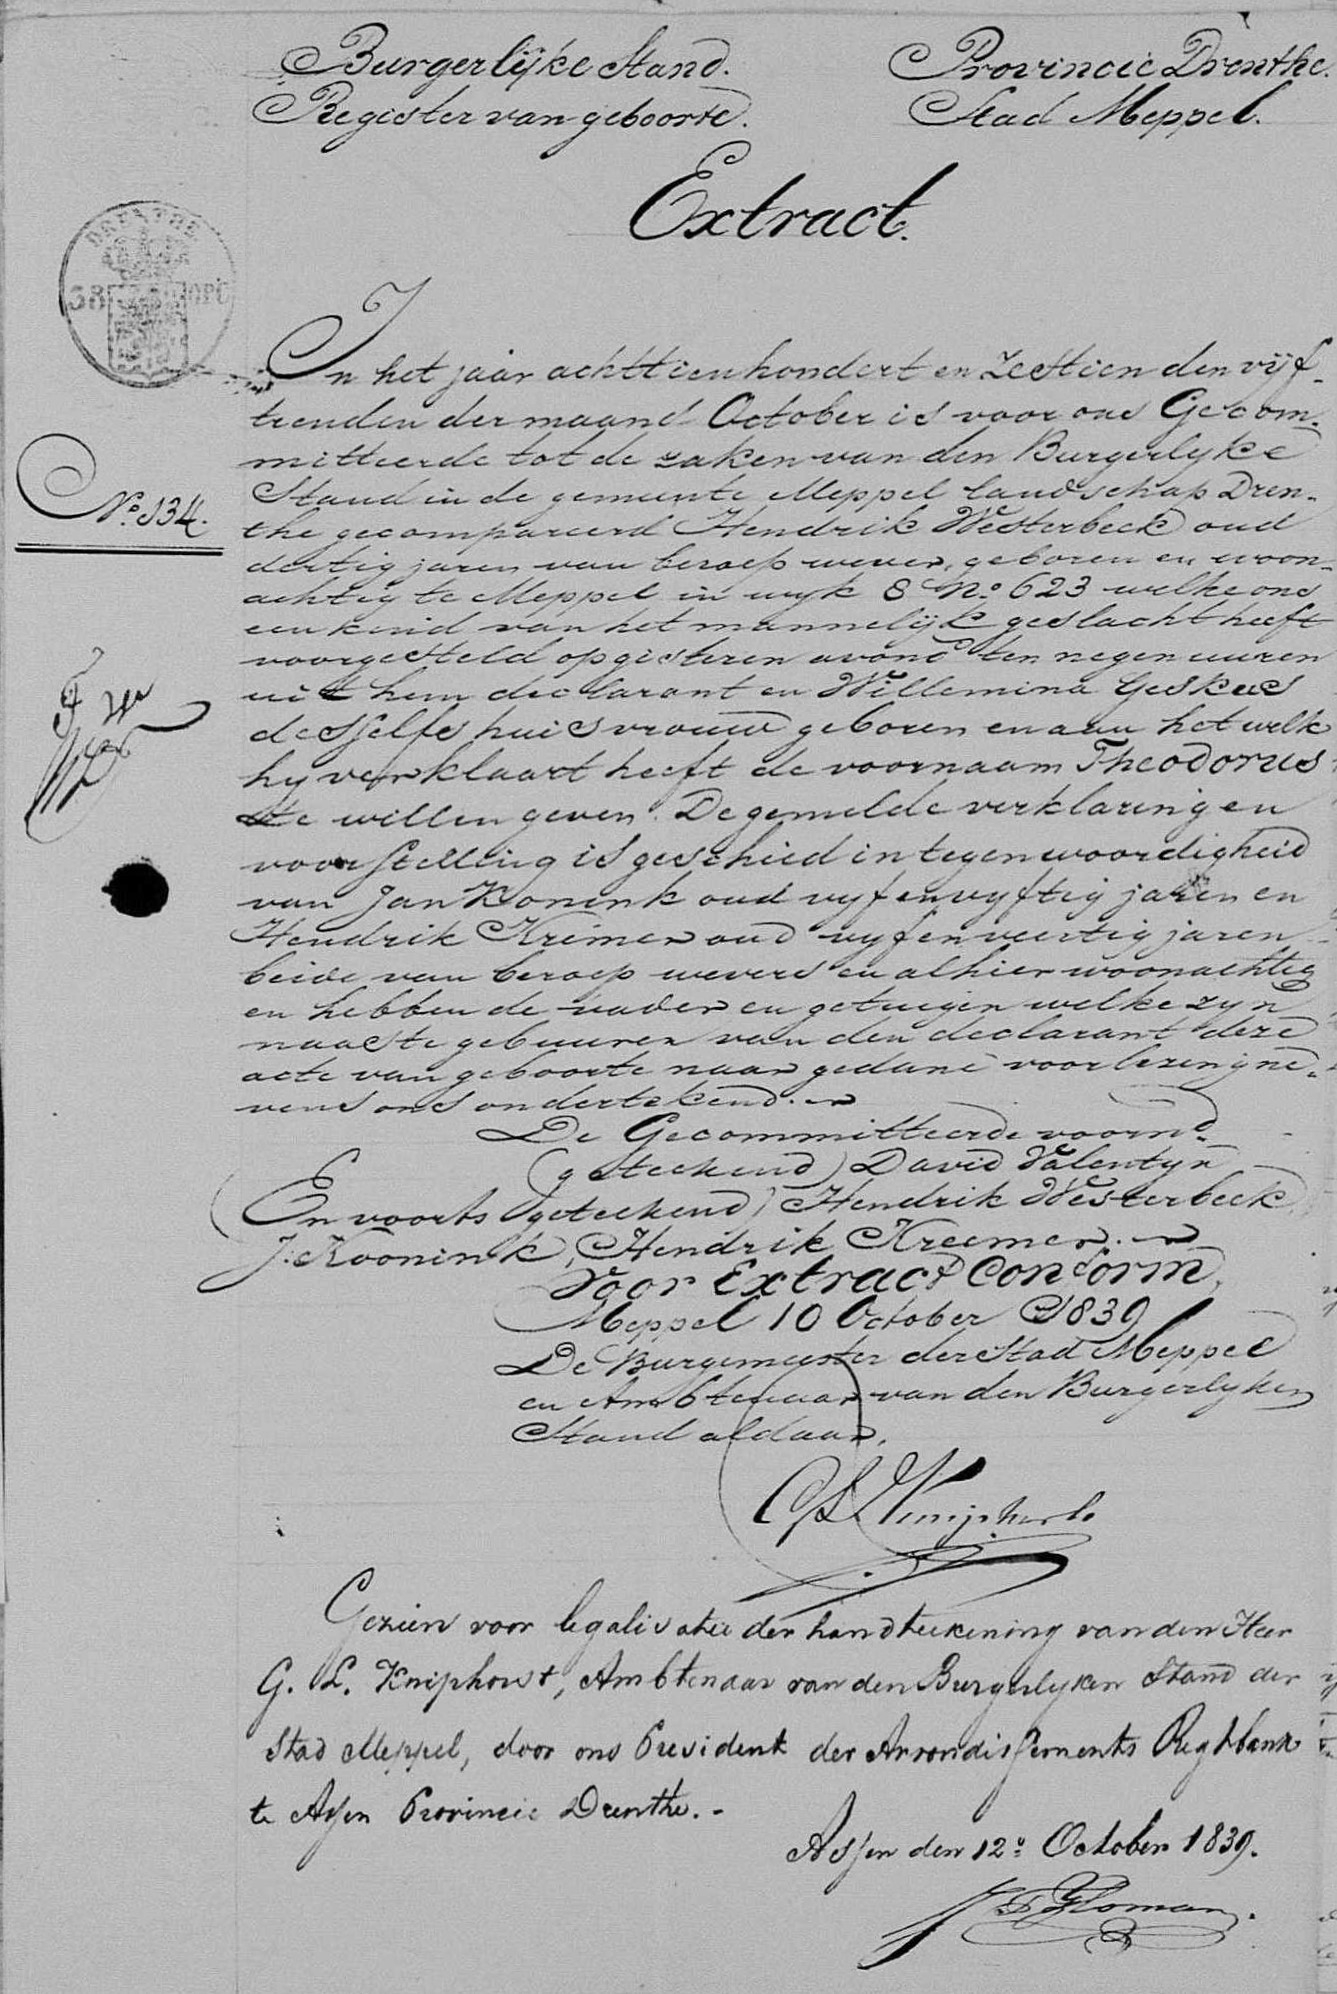 Burgerlijke Stand.
Provincie Drenthe.
Register van geboorte.
Stad Meppel.
Extract.
DRENTHE
38
OPC
In het jaar achttienhondert en zestien den vijf-
tienden der maand October is voor ons Gecom-
mitteerde tot de zaken van den Burgerlyke
Stand in de gemeente Meppel landschap Dren-
No. 134.
the gecompareerd Hendrik Westerbeek oud
dertig jaren van beroep wever, geboren en woon-
achtig te Meppel in wyk 8 No. 623 welke ons
een kind van het mannelijk geslacht heeft
voorgesteld op gisteren avond ten negen uuren
uit hem declarant en Willemina Geskus
desselfs huisvrouw geboren en aan het welk
hy verklaart heeft de voornaam Theodorus
te willen geven. De gemelde verklaring en
voorstelling is geschied in tegenwoordigheid
van Jan Konink oud vyfenvyftig jaren en
Hendrik Krimer oud vyfenveertig jaren
beide van beroep wevers en alhier woonachtig
en hebben de vader en getuigen welke zyn
naaste gebuuren van den declarant deze
acte van geboorte naar gedane voorlezing ne-
vens ons ondertekend.
De Gecommitteerde voornd.
(geteekend) David Valentyn
(En voorts geteekend) Hendrik Westerbeek
J. Koonink, Hendrik Kreemer.
Voor Extract Conform,
Meppel 10 October 1839
De Burgemeester der Stad Meppel
en Ambtenaar van den Burgerlyken
Stand aldaar,
GL Kniphorst
Gezien voor legalisatie der handteekening van den Heer
G. L. Kniphorst, Ambtenaar van den Burgerlyken Stand der
Stad Meppel, door ons President der Arrondissements Regtbank
te Assen Provincie Drenthe.-
Assen den 12e October 1839.